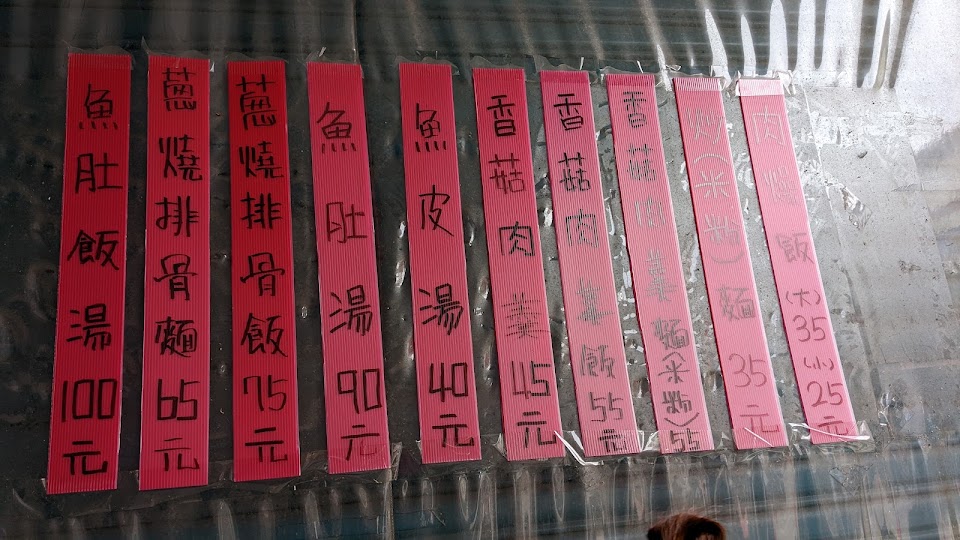 肉燥飯(大)35(小)25元
炒(米粉)麵35元
香菇肉羹麵(米粉)55
香菇肉羹飯55元
香菇肉羹45元
魚皮湯40元
魚肚湯90元
蔥燒排骨飯75元
蔥燒排骨麵65元
魚肚飯湯100元